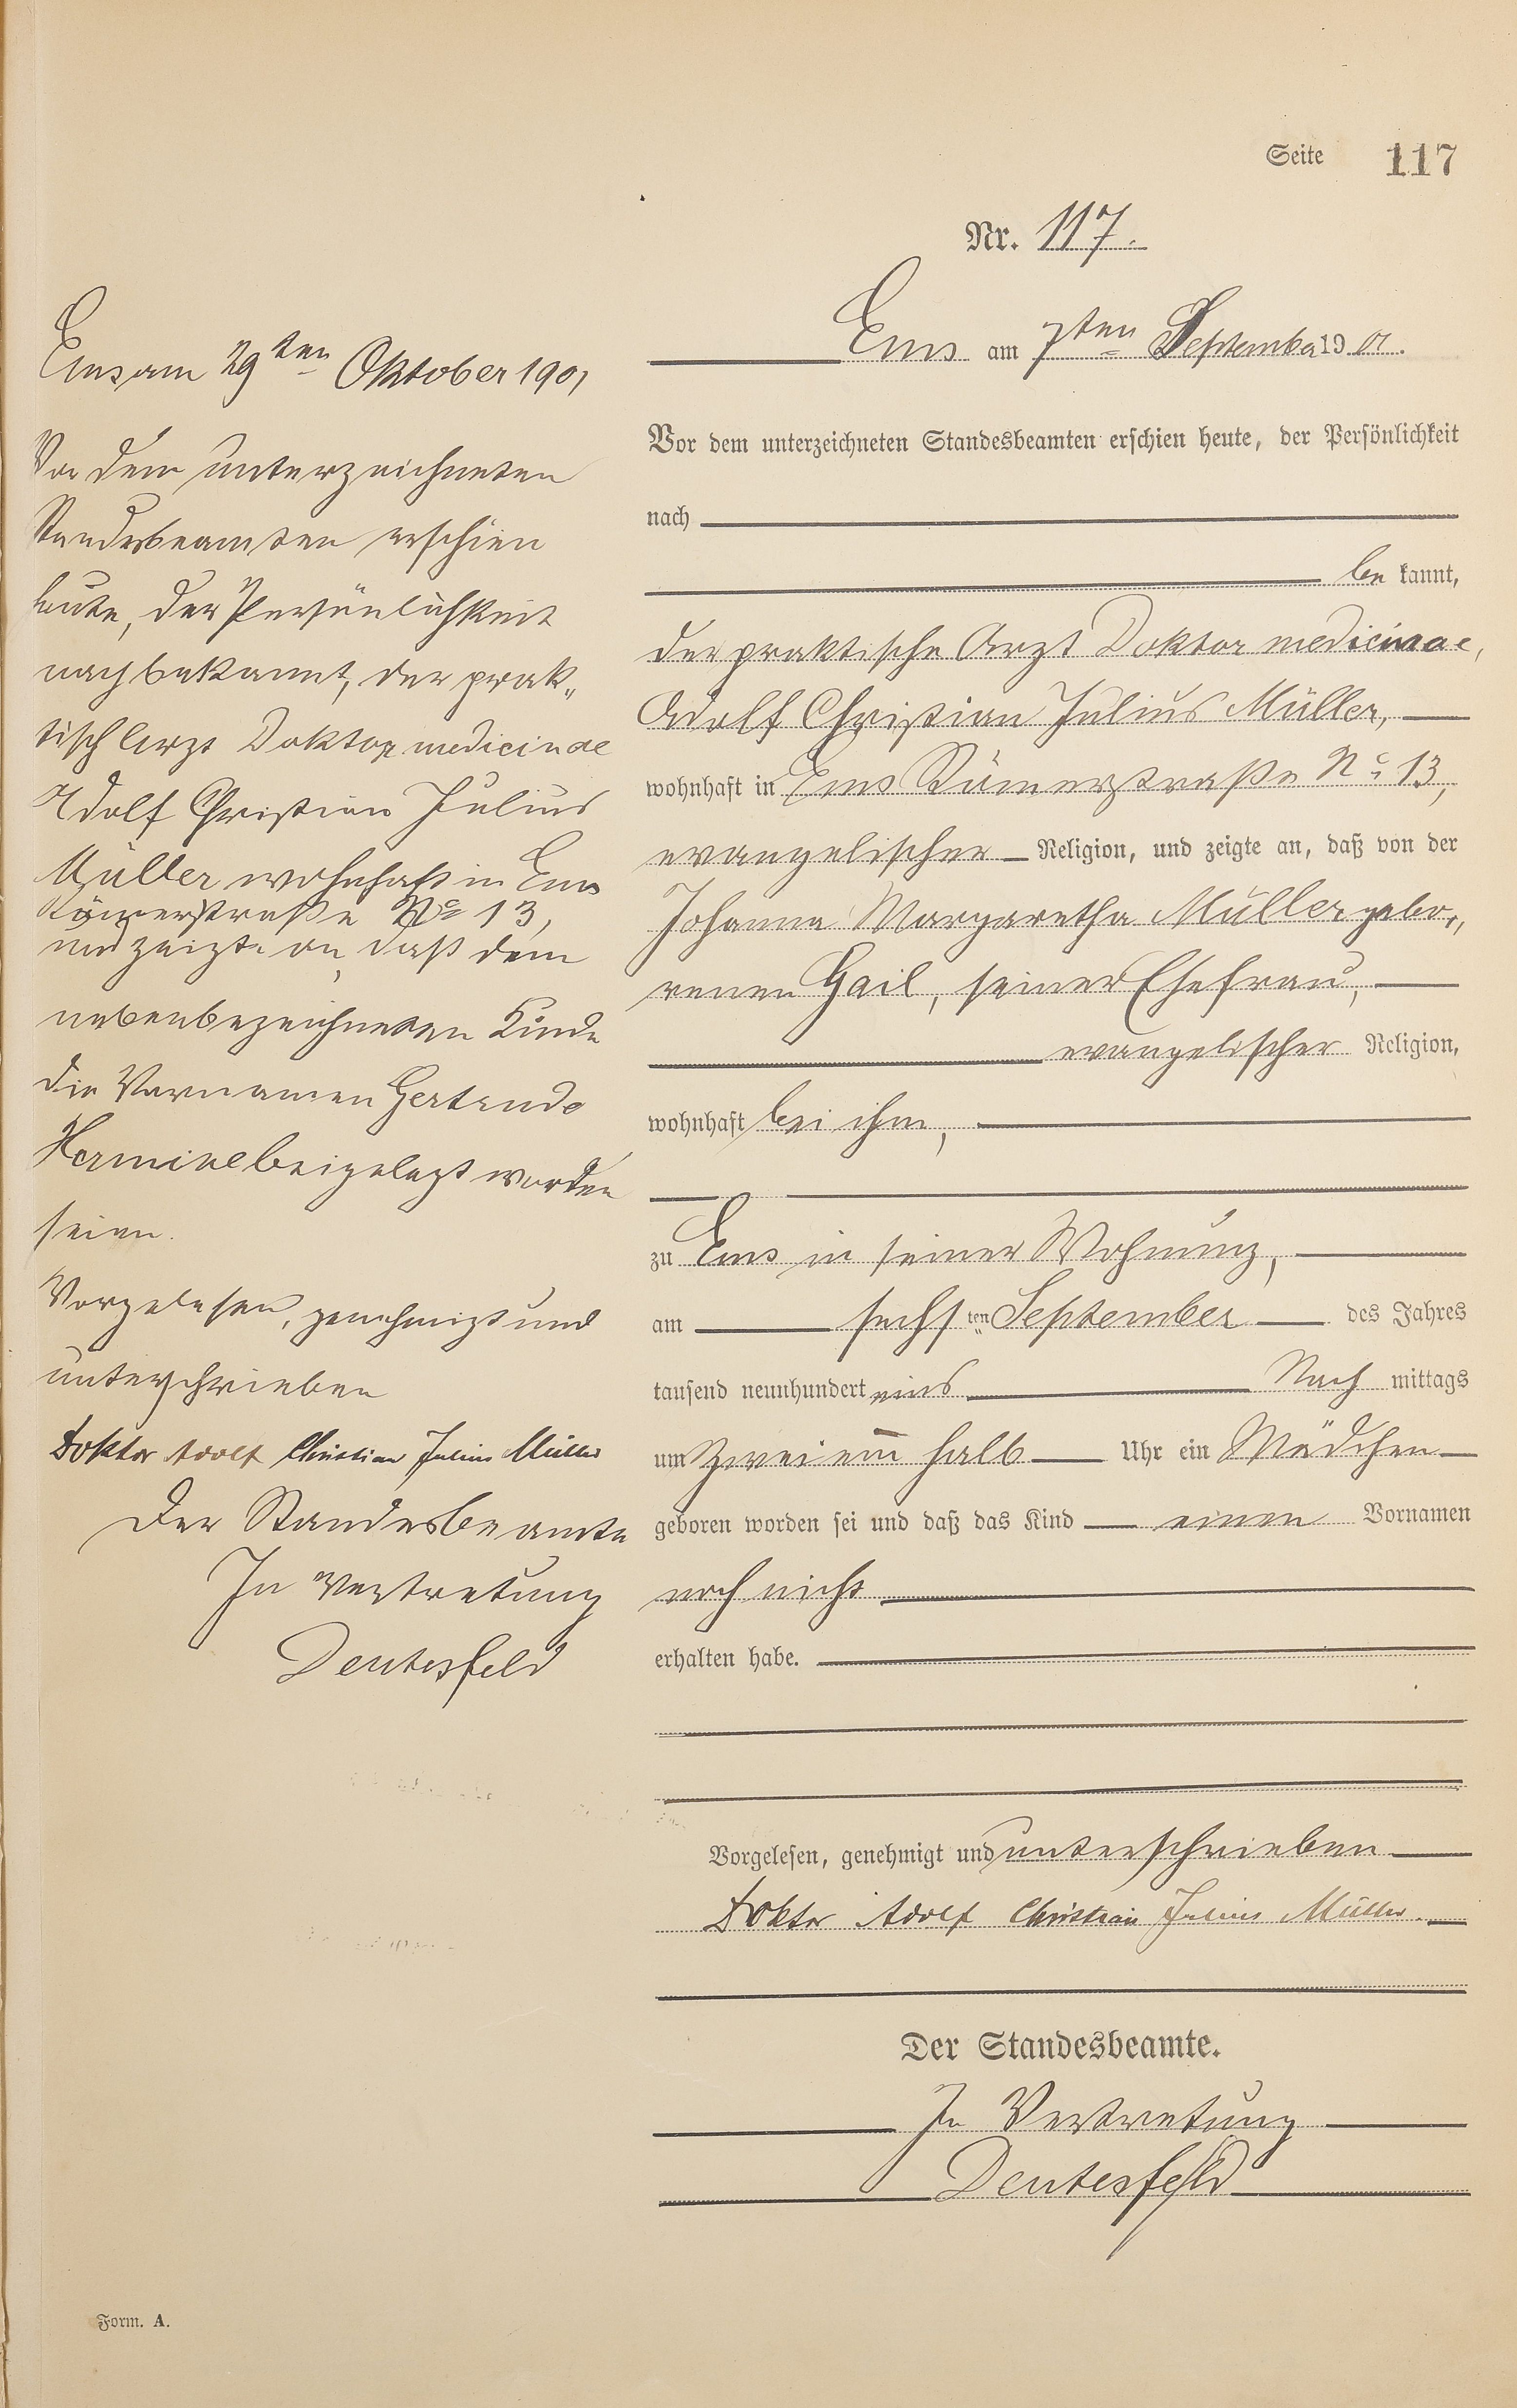 Seite 117
Nr. 117.
Ems am 7ten September 1901.
Vor dem unterzeichneten Standesbeamten erschien heute, der Persönlichkeit
nach
bekannt,
der praktische Arzt Doktor medicinae,
Adolf Christian Julius Müller,
wohnhaft in Ems Römerstraße No 13,
evangelischer Religion, und zeigte an, daß von der
Johanna Margaretha Müller gebo„
renen Gail, seiner Ehefrau,
evangelischer Religion,
wohnhaft bei ihm,
zu Ems in seiner Wohnung,
am sechsten September des Jahres
tausend neunhundert eins Nachmittags
um zwei ein halb Uhr ein Mädchen
geboren worden sei und daß das Kind einen Vornamen
noch nicht
erhalten habe.
Vorgelesen, genehmigt und unterschrieben
Doktor Adolf Christian Julius Müller.
Der Standesbeamte.
In Vertretung
Deutesfeld
Ems am 29ten Oktober 1901
Vor dem unterzeichneten
Standesbeamten erschien
heute, der Persönlichkeit
nach bekannt, der prak„
tisch Arzt Doktor medicinae
Adolf Christian Julius
Müller wohnhaft in Ems
Römerstraße No 13,
und zeigte an, daß dem
nebenbezeichneten Kinde
die Vornamen Gertrude
Hermine beigelegt worden
seien.
Vorgelesen, genehmigt und
unterschrieben
Doktor Adolf Christian Julius Müller
Der Standesbeamte
In Vertretung
Deutesfeld
Form. A.